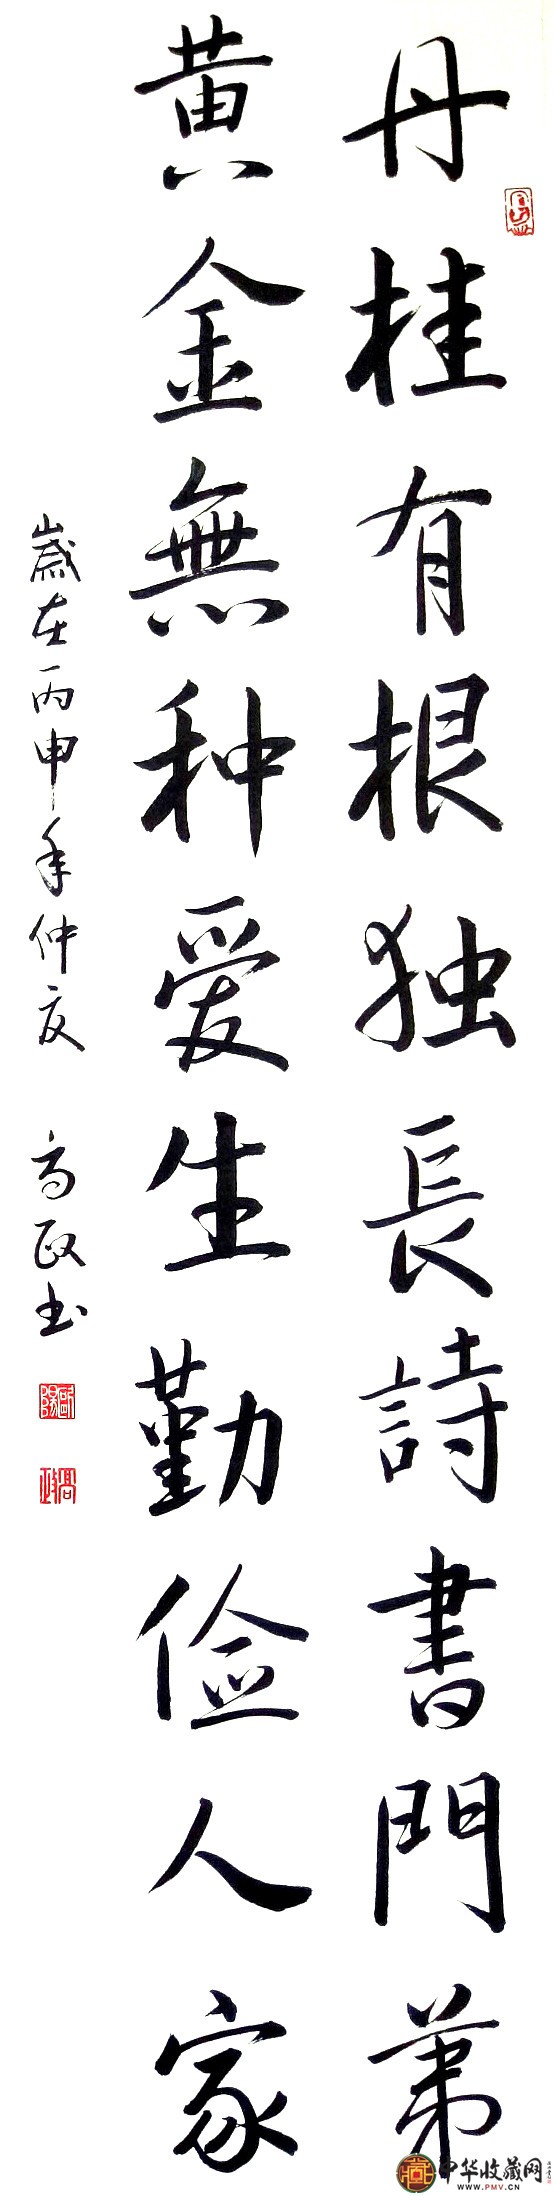 丹桂有根独長詩書門第
黄金無种爱生勤俭人家
歲在丙申年仲夏 高政书
歐陽
高政
中华收藏网
www.PMV.CN